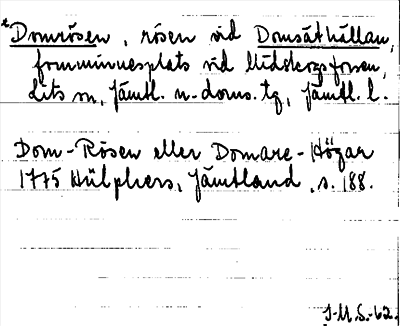 *Domrösen, rösen vid Domsäthällan,
fornminnesplats vid Midskogsforsen,
Lits sn, Jämtl. n. doms. tg, Jämtl. l.
Dom-Rösen eller Domare-Högar
1775 Hülphers, Jämtland, s. 188.
J.M.S.-62.